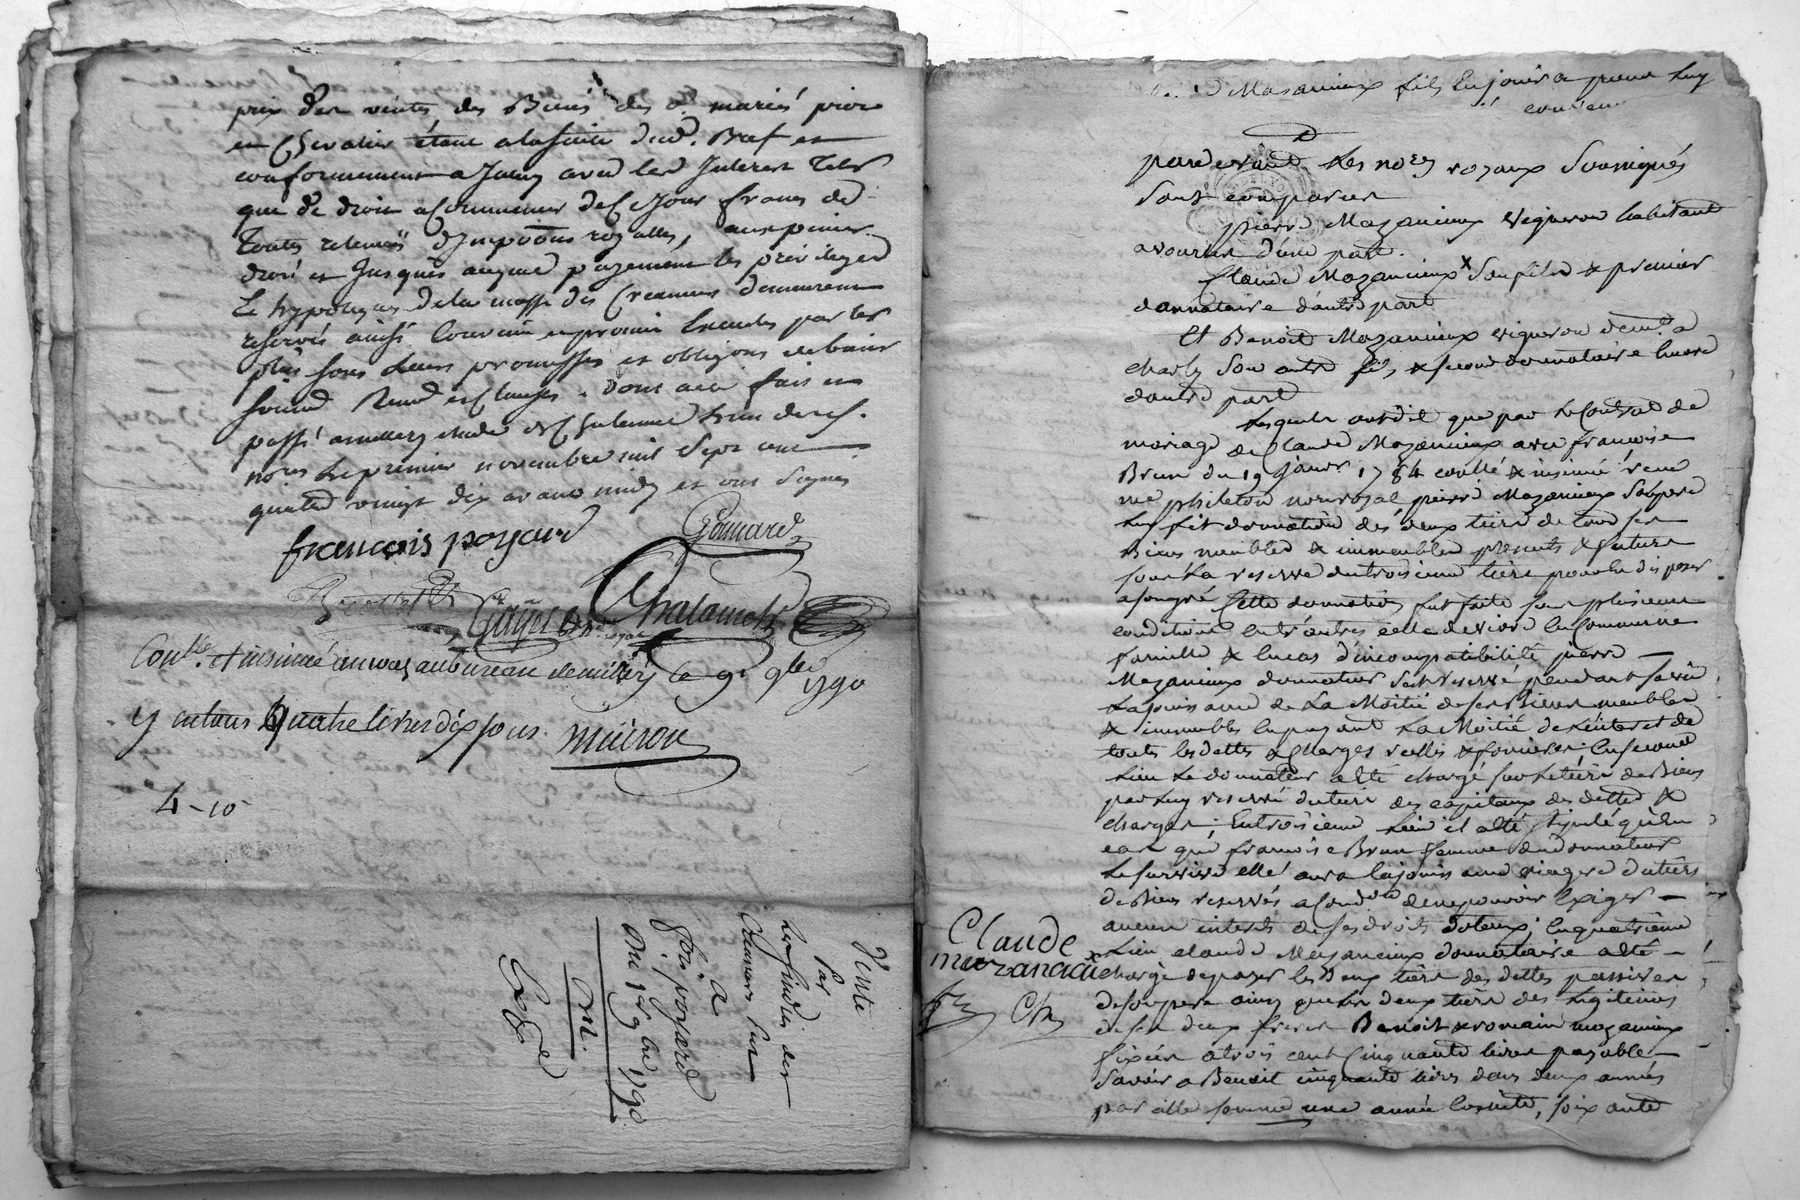 prix des ventes des Biens des d. mariés
et Chevalier étant a la suite dud. Bref et
conformement a Jceluy avec les Interest tels
que de droit a Commencer de ce Jour francs de
toutes retenues d'Impôons royalles, aux
droit et Jusques auquel payement les privileges
Et hypoteques de la masse des Creanciers demeurent
reservés ainsi Convenu et promis Executer par les
pties sous Leurs promesses et obligons de biens
soumd Renond et Clauses. Dont acte fait et
passé a millery etude de Gulemne L'un desd.
nores Le premier novembre mil Sept cent
quatre vingt dix avant midy et ont Signés
françois poyard
Gomard
Cayet
royal
Chalamet
Conllé et insinué au bureau de millery le 9. 9bre
1790
y contenu Quatre livres dix sous
4-10
Vente
par
Les sindics des
Creanciers
a
fçois poyard
Du 1er 9bre 1790
Mazancieux fils Enjouir a pierre
pardevant Les nores royaux Soussignés
Sont comparus
pierre Mazancieux Vigneron habitant
a vourles d'une part.
Claude Mazancieux Son fils & premier
donnataire dautre part
Et Benoit Mazancieux vigneron demt. a
charly Son autre fils & second donnataire Encore
dautre part
Lesquels ont dit que par Le Contrat de
mariage de Claude Mazancieux avec françoise
Brun du 19 Janvr. 1784 conllé & insinué reçu
me phileton nore royal pierre Mazancieux Son pere
Luy fit donnation des deux tiers de tous ses
Biens meubles & immeubles presents & futurs
sous La reserve du troisieme tiers pour en disposer
a son gré Cette donnation fut faite sous plusieurs
conditions Entr'autres celle de vivre En Commune
famille & En cas d'incompatibilité pierre
Mazancieux donnateur S'est reservé pendant sa vie
La jouissance de La Moitié de ses Biens meubles
& immeubles En payant La Moitié de L'interet de
toutes les dettes & Charges reelles & foncieres; En second
Lieu Le donnateur a eté chargé sur Le tiers des Biens
par Luy reservé du tiers des capitaux des dettes &
charges; En troisieme Lieu il a eté stipulé qu'En
cas que françoise Brun femme du donnateur
Le survive elle aura la jouissance viagere du tiers
des Biens reservés a Condon de ne pouvoir Exiger
aucun interet de ses droits dotaux; En quatrieme
Claude
mazancieux
Lieu claude Mazancieux donnataire a eté
chargé de payer les Deux tiers des dettes passives
Ch
de son pere ainsi que les deux tiers des Legitimes
de ses deux freres Benoit & romain mazancieux
fixées a trois cent Cinquante livres payable
Savoir a Benoit cinquante livres dans deux années
par elle somme une année Ensuite, soixante